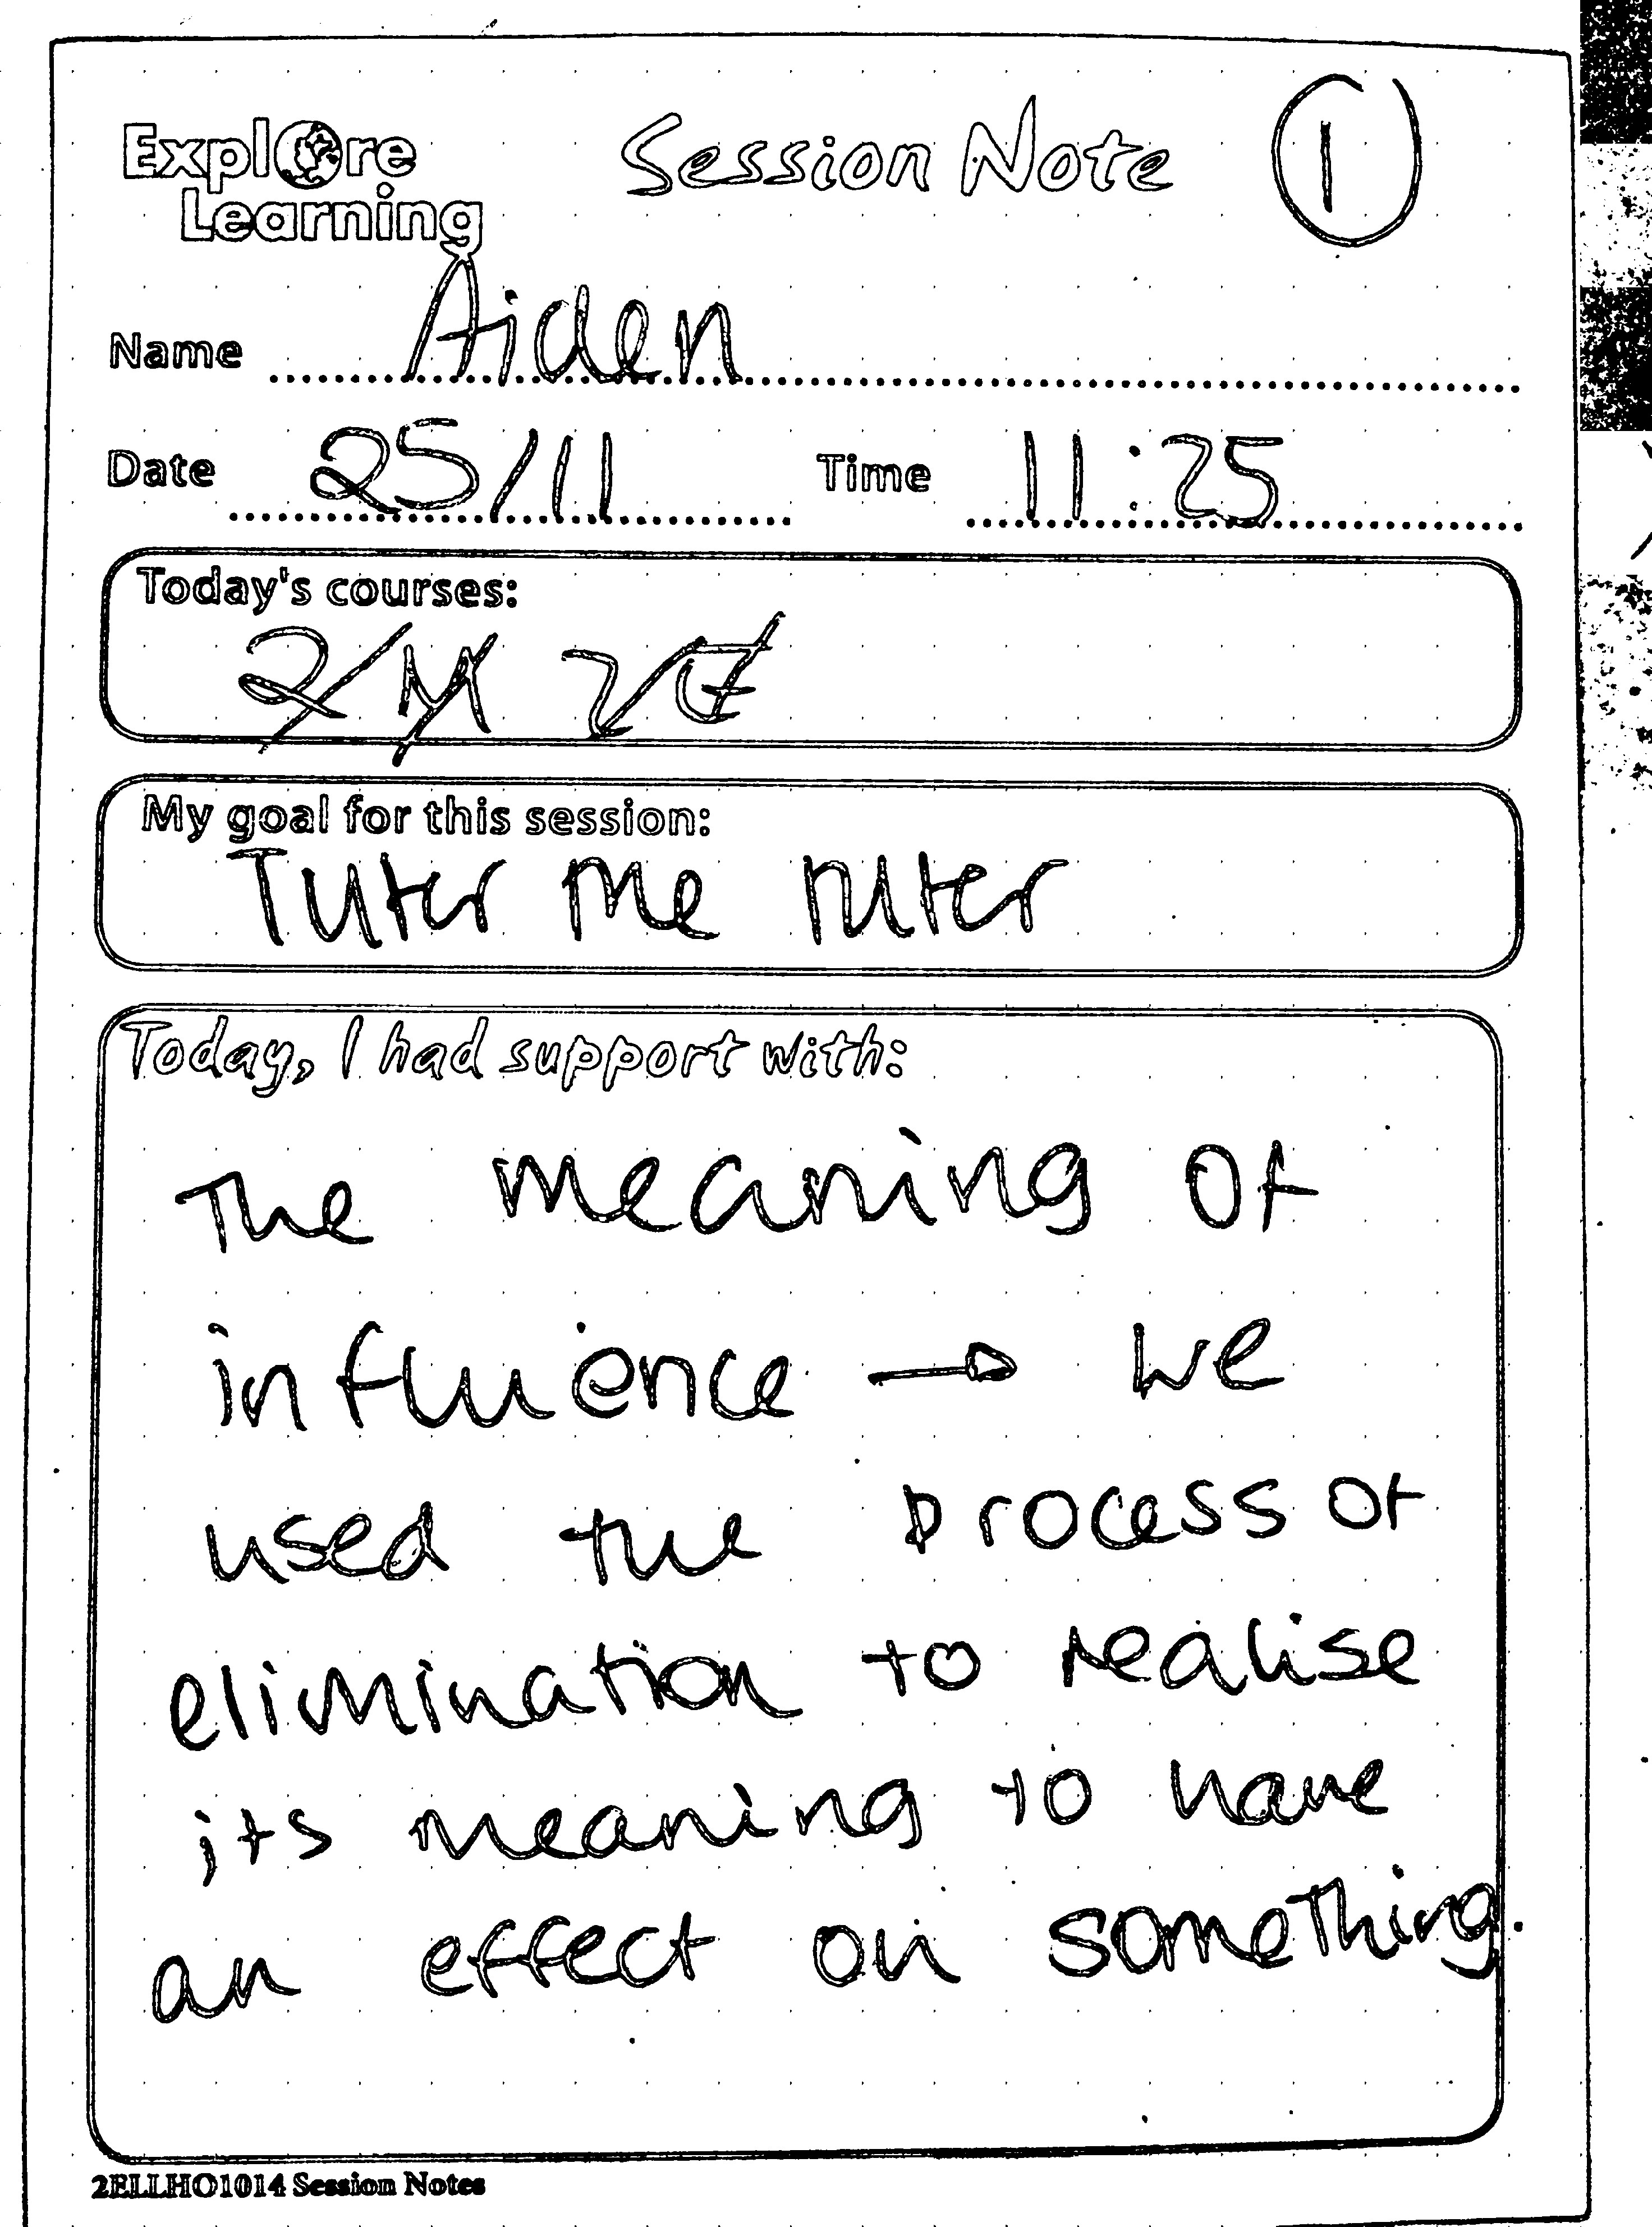 Explore
Learning
Session Note
1
Name Aiden
Date 25/11 Time 11:25
Today's courses:
2 M 2 E
My goal for this session:
Tuter me
Today, I had support with:
The meaning of
influence → we
used the process of
elimination to realise
its meaning to have
an effect on something.
2ELLHO1014 Session Notes